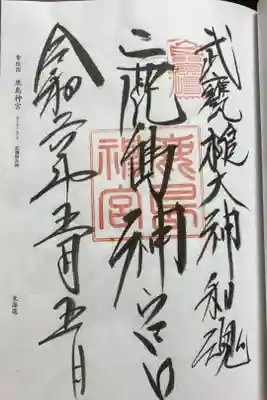 武甕槌大神和魂
鹿島神宮
鹿島神宮
令和六年五月五日
鹿島神宮
東海道